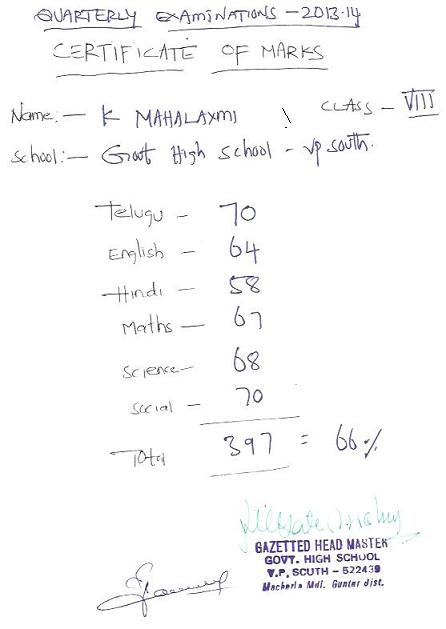 QUARTERLY EXAMINATIONS - 2013-14
CERTIFICATE OF MARKS
Name:- K MAHALAXMI CLASS - VIII
School:- Govt High School - VP South.
Telugu - 70
English - 64
Hindi - 58
Maths - 67
Science - 68
Social - 70
Total 397 = 66%
GAZETTED HEAD MASTER
GOVT. HIGH SCHOOL
V.P. SOUTH - 522439
Macherla Mdl. Guntur dist.